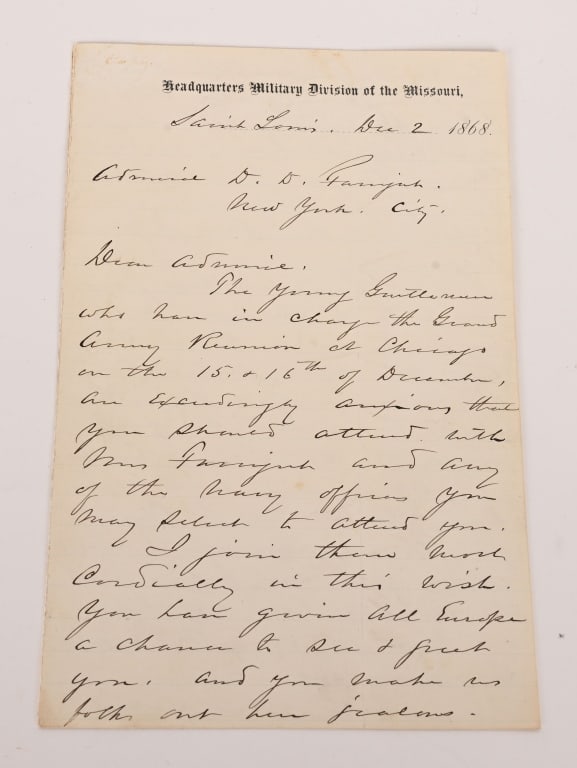 Headquarters Military Division of the Missouri,
Saint Louis. Dec 2 1868.
Admiral D. D. Farragut.
New York. City.
Dear Admiral.
The Young Gentlemen
who have in charge the Grand
Army Reunion at Chicago
on the 15. & 16th of December,
are exceedingly anxious that
you should attend. with
Mrs Farragut and any
of the Navy officers you
may select to attend you.
I join them most
Cordially in this wish.
You have given all Europe
a chance to see & greet
you. and you make us
folks out here jealous.